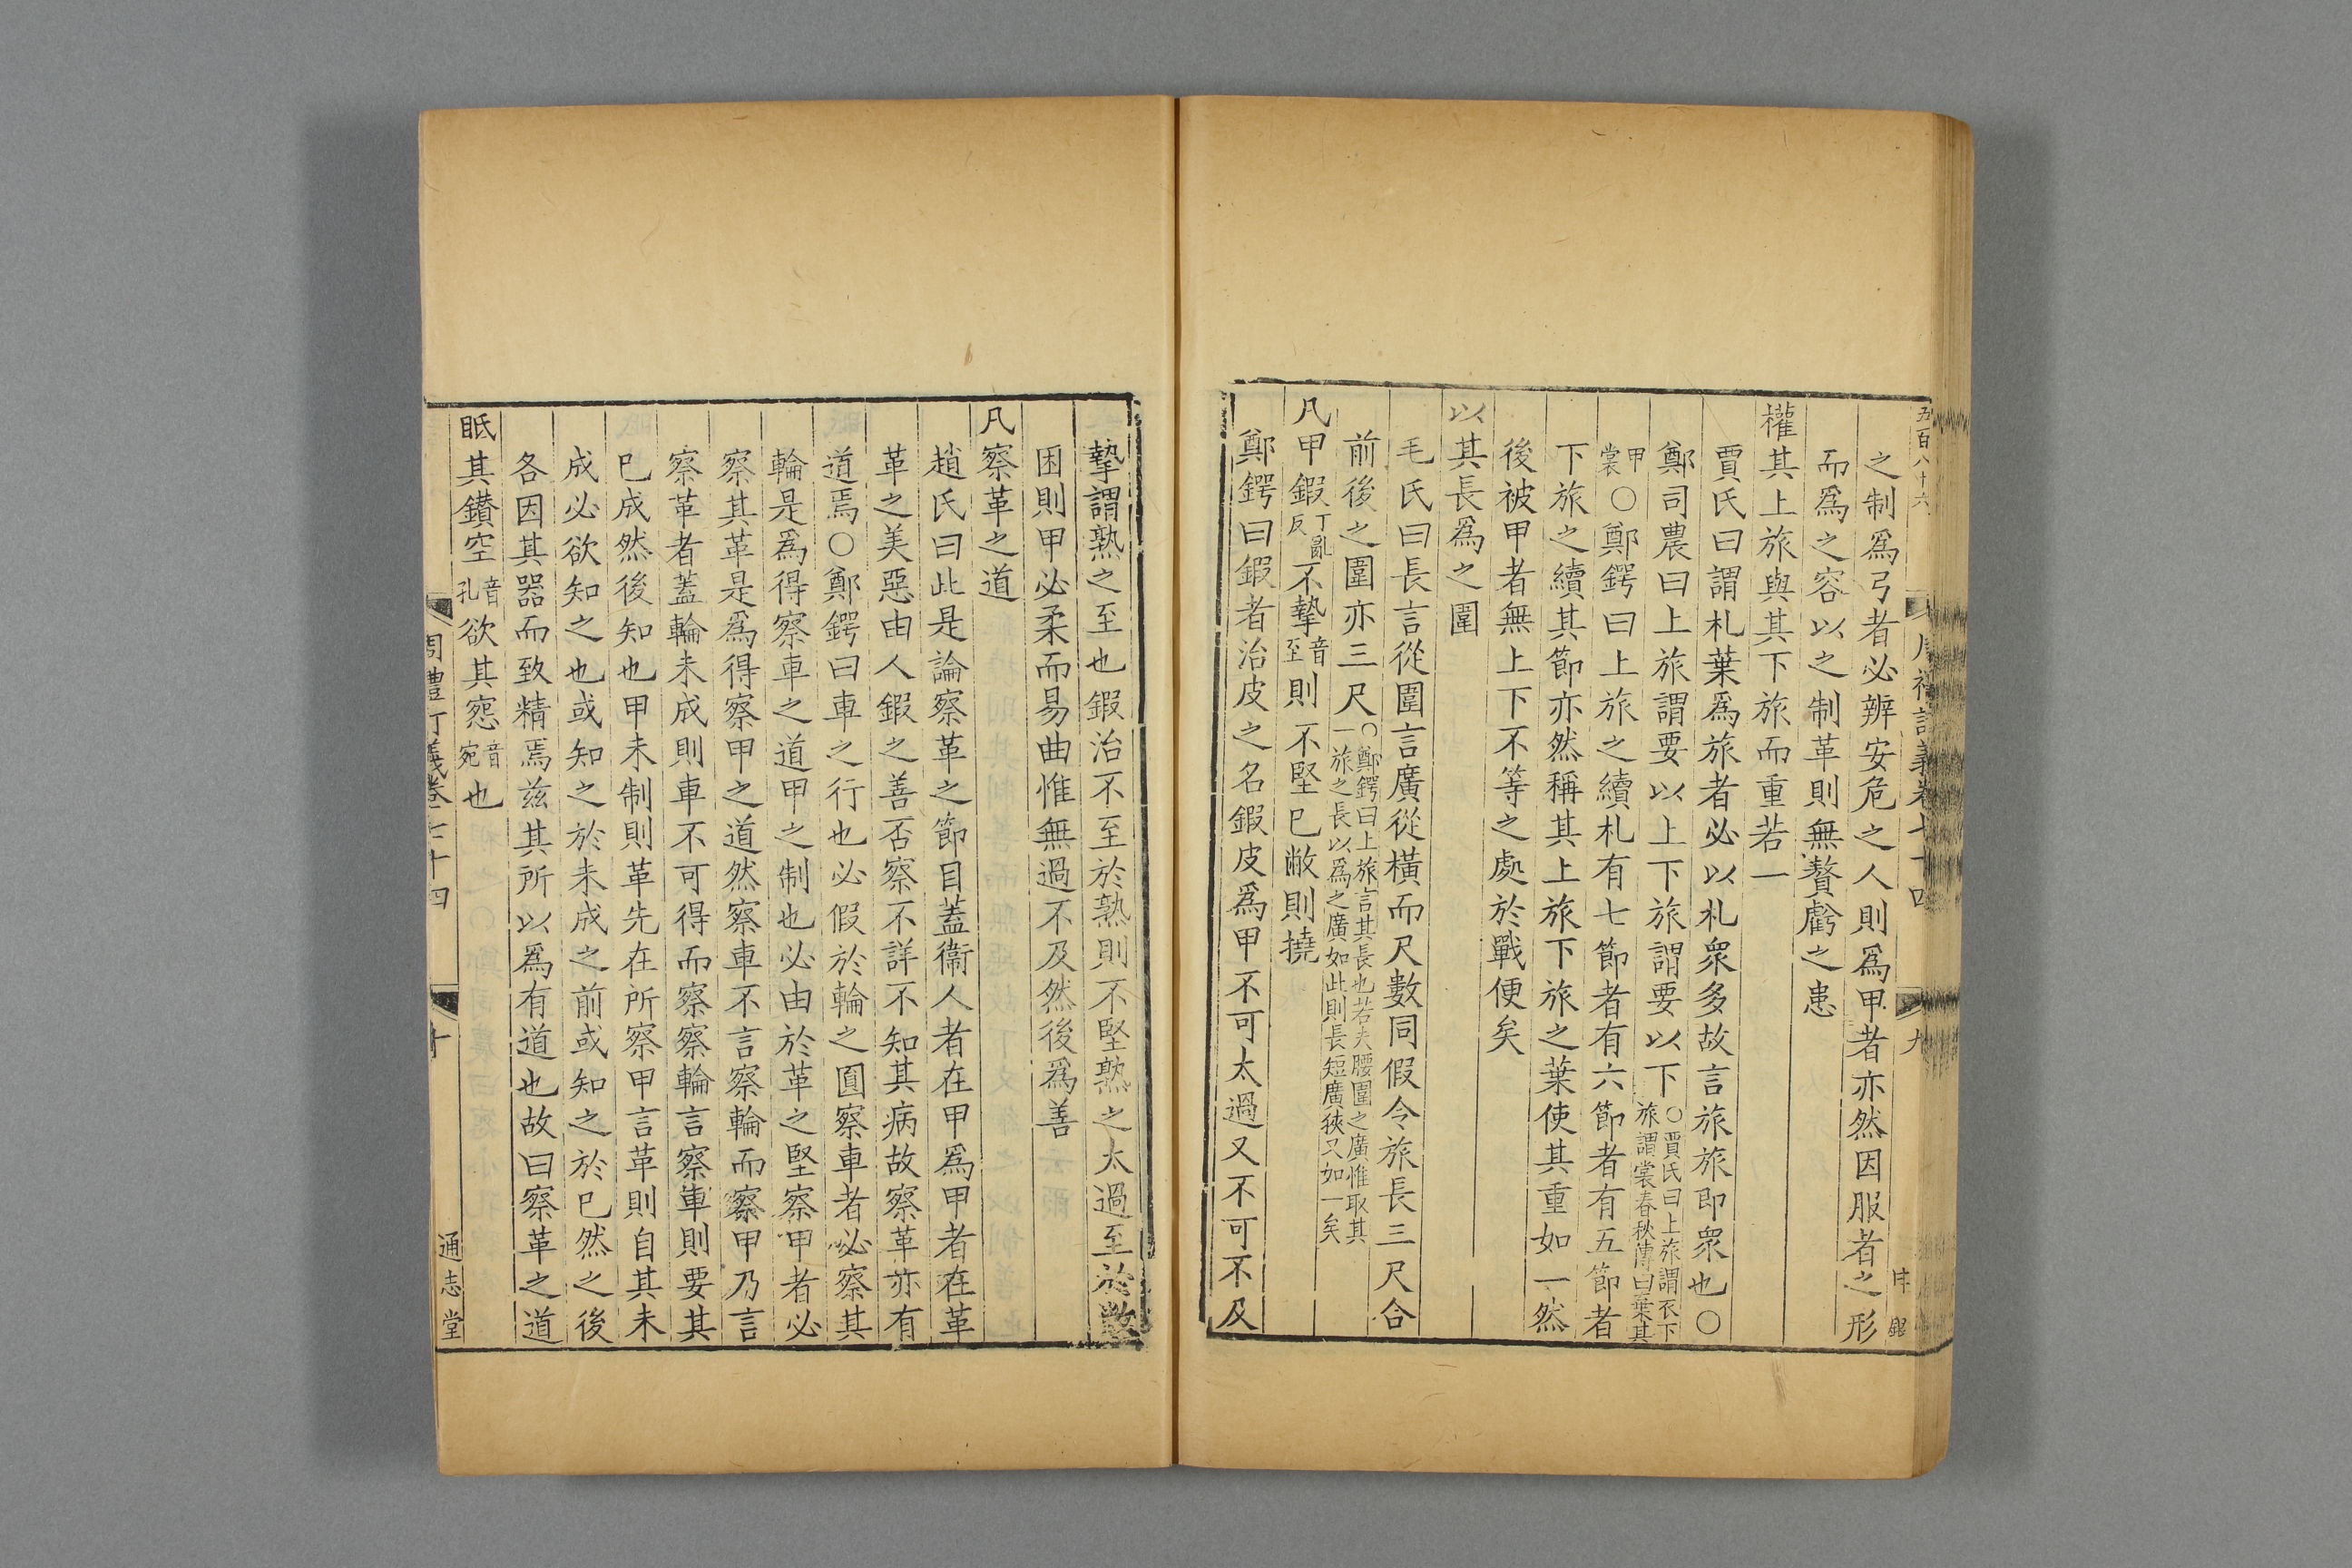 五百八十六
周禮訂義卷七十四
九
之制爲弓者必辨安危之人則爲甲者亦然因服者之形
而爲之容以之制革則無贅虧之患
權其上旅與其下旅而重若一
賈氏曰謂札葉爲旅者必以札衆多故言旅旅即衆也〇
鄭司農曰上旅謂要以上下旅謂要以下〇賈氏曰上旅謂衣下旅謂裳春秋傳曰棄其
甲裳〇鄭鍔曰上旅之續札有七節者有六節者有五節者
下旅之續其節亦然稱其上旅下旅之葉使其重如一然
後被甲者無上下不等之處於戰便矣
以其長爲之圍
毛氏曰長言從圍言廣從橫而尺數同假令旅長三尺合
前後之圍亦三尺〇鄭鍔曰上旅言其長也若夫腰圍之廣惟取其一旅之長以爲之廣如此則長短廣狹又如一矣
凡甲鍜丁亂反不摯音至則不堅巳敝則撓
鄭鍔曰鍜者治皮之名鍜皮爲甲不可太過又不可不及
摯謂熟之至也鍜治不至於熟則不堅熟之太過至於敝
困則甲必柔而易曲惟無過不及然後爲善
凡察革之道
趙氏曰此是論察革之節目蓋衞人者在甲爲甲者在革
革之美惡由人鍜之善否察不詳不知其病故察革亦有
道焉〇鄭鍔曰車之行也必假於輪之圓察車者必察其
輪是爲得察車之道甲之制也必由於革之堅察甲者必
察其革是爲得察甲之道然察車不言察輪而察甲乃言
察革者蓋輪未成則車不可得而察察輪言察車則要其
巳成然後知也甲未制則革先在所察甲言革則自其未
成必欲知之也或知之於未成之前或知之於巳然之後
各因其器而致精焉兹其所以爲有道也故曰察革之道
眡其鑽空音孔欲其窓音宛也
周禮訂義卷七十四
十
通志堂